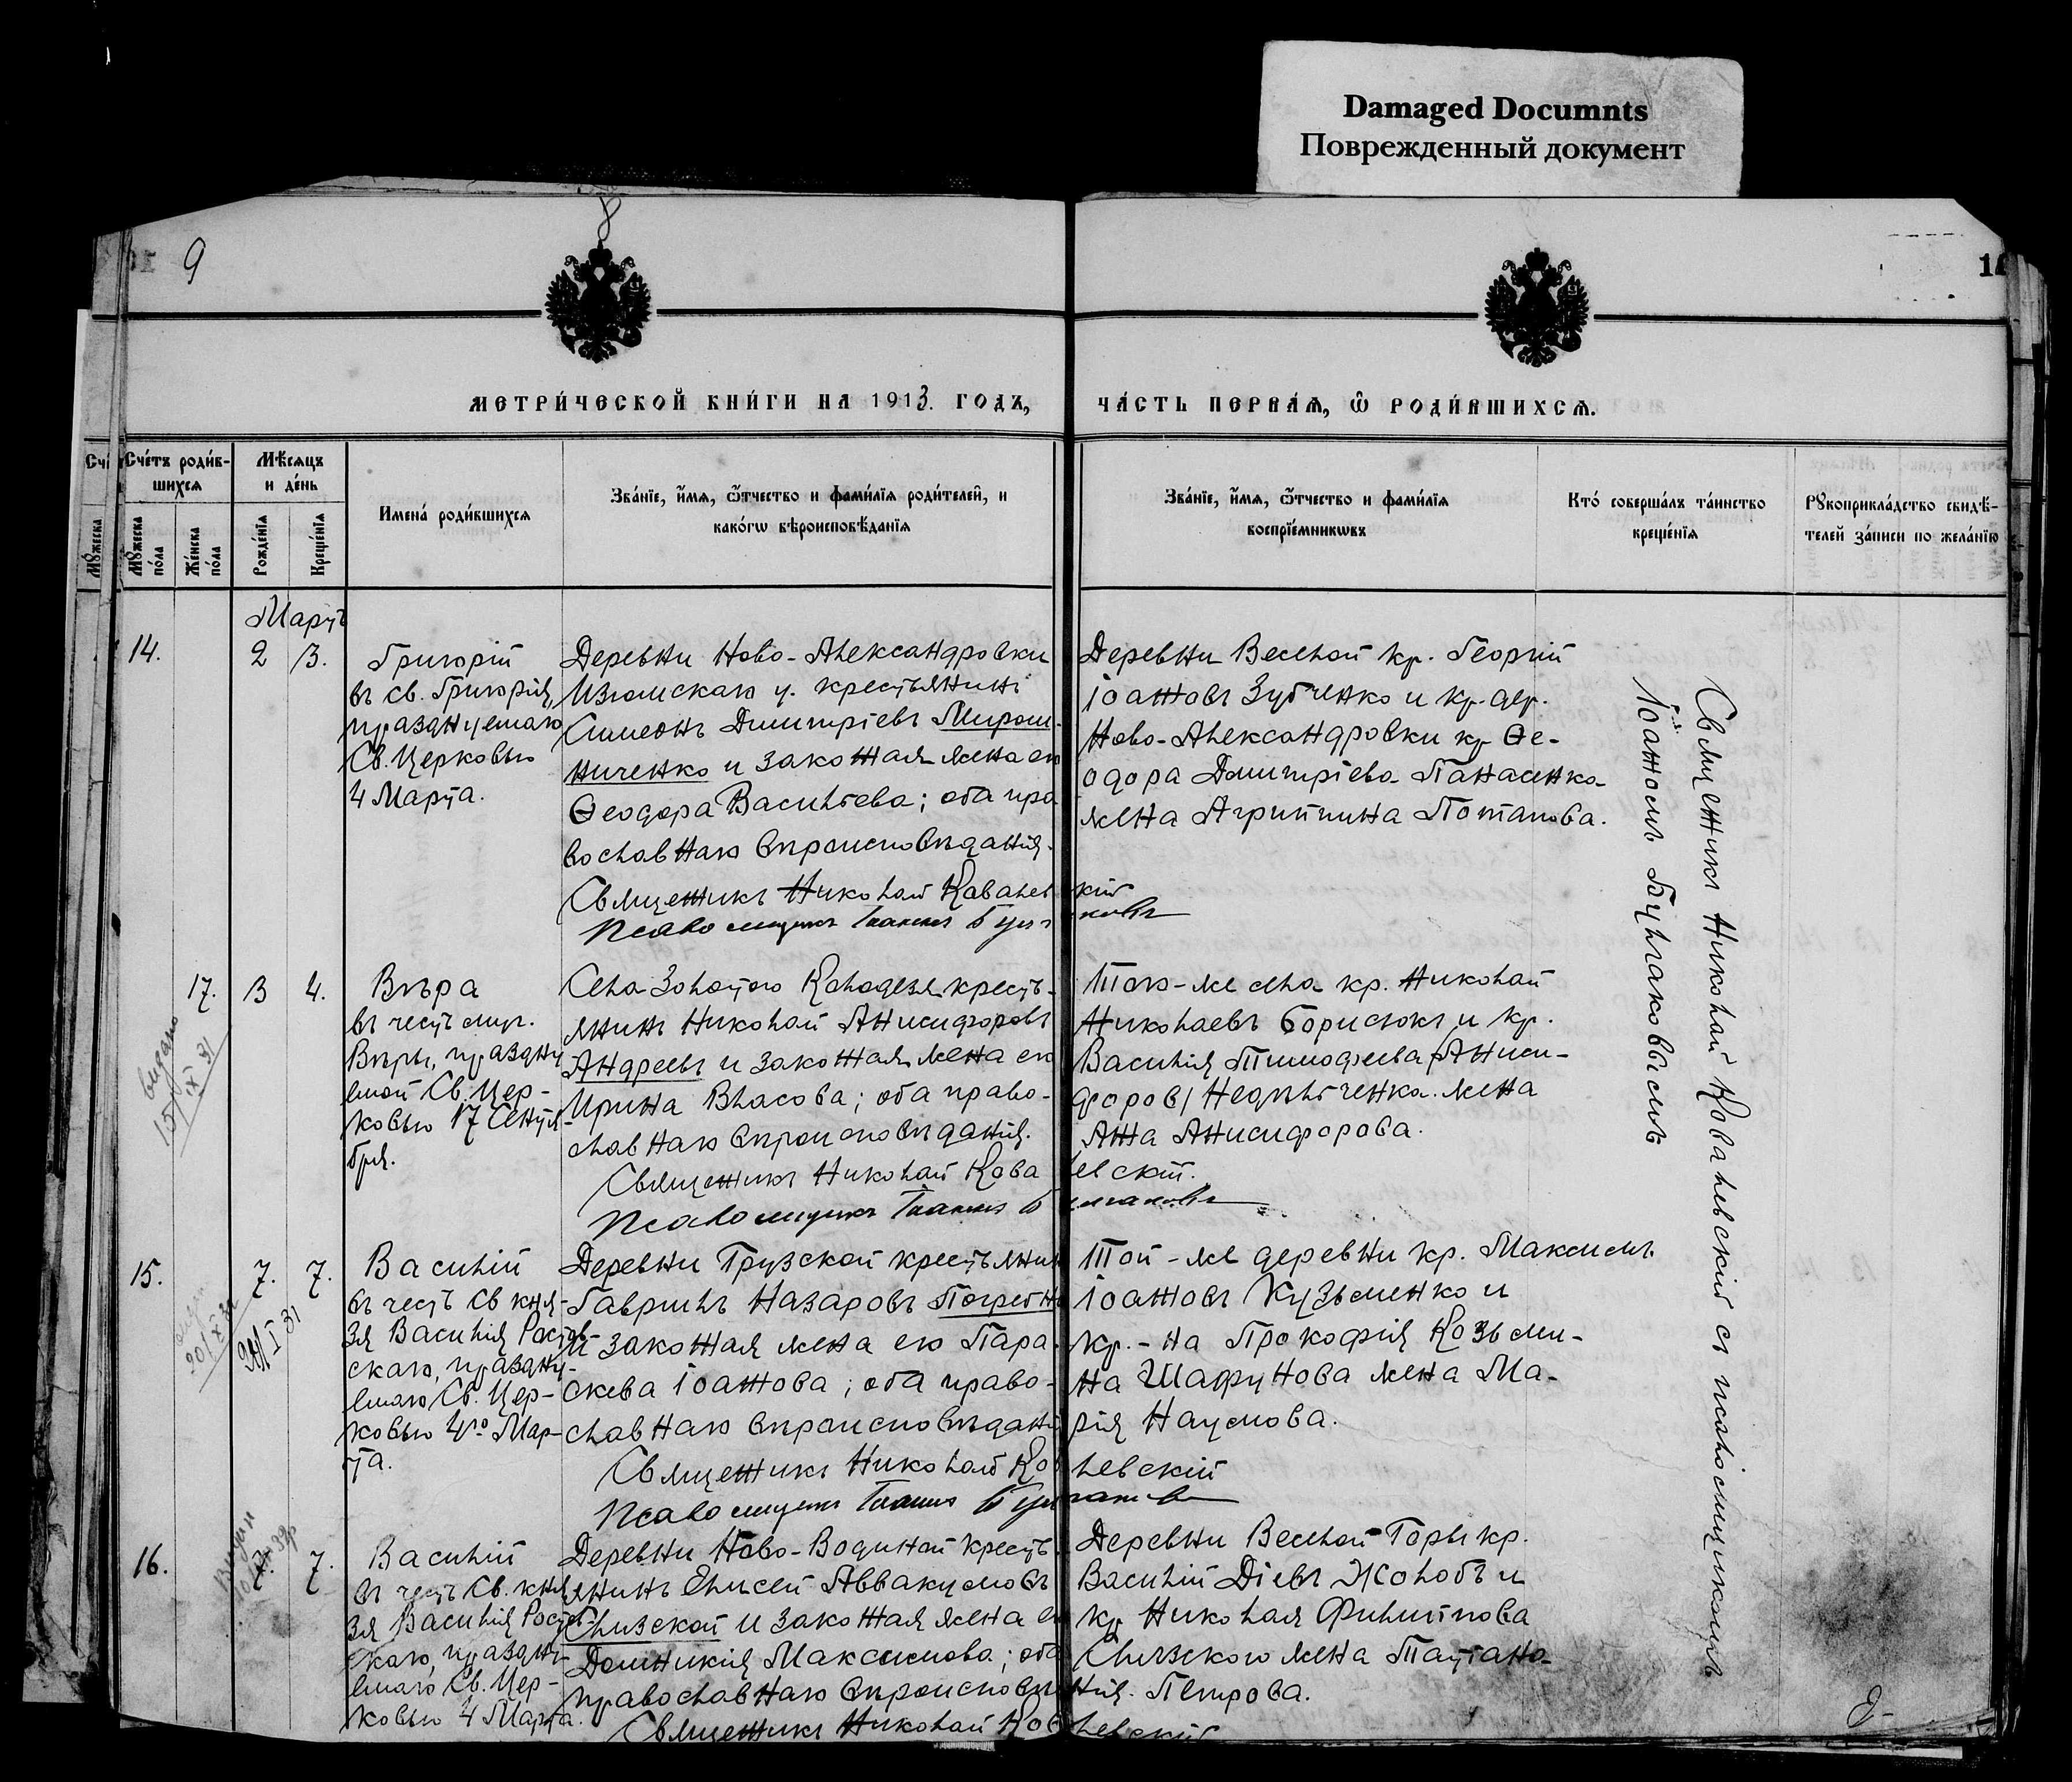 Damaged Documnts
Поврежденный документ
9
8
МЕТРИ́ЧЕСКОЙ КНИ́ГИ НА 1913. ГОДЪ,
ЧА́СТЬ ПЕРВА́Я, Ѿ РОДИ́ВШИХСѦ.
Сче́тъ роди́в-
шихсѧ
Мꙋ́жеска по́ла
Же́нска по́ла
Мѣ́сѧцъ
и де́нь
Рожде́нїѧ
Креще́нїѧ
Имена́ роди́вшихсѧ
Зва́нїе, и҆́мѧ, ѻ҆́тчество и фами́лїѧ роди́телей, и
како́гѡ вѣроисповѣ́данїѧ
Зва́нїе, и҆́мѧ, ѻ҆́тчество и фами́лїѧ
воспрїе́мникѡвъ
Кто̀ соверша́лъ та́инство
креще́нїѧ
Рꙋкоприкла́дство свидѣ́-
телей за́писи по жела́нїю
Мартъ
14.
2
3.
Григорій
въ св. Григорія,
празднуемаго
Св. Церковью
4 Марта.
Деревни Ново-Александровки
Изюмскаго у. крестьянинъ
Симеонъ Димитріевъ Мирош-
ниченко и законная жена его
Ѳеодора Васильева; оба пра
вославнаго вѣроисповѣданія.
Священникъ Николай Ковалевскій
Псаломщикъ Іоаннъ Булгаковъ
Деревни Веселой кр. Георгій
Іоанновъ Зубченко и кр. дер.
Ново-Александровки кр Ѳе-
одора Димитріева Панасенка
жена Агриппина Потапова.
17.
3
4.
Вѣра
въ честь муч.
Вѣры, праздну
емой Св. Цер-
ковью 17 Сентя-
бря.
выдано
15/IX 31
Села Золотого Колодезя кресть-
янинъ Николай Анисифоровъ
Андреевъ и законная жена его
Ирина Власова; оба право-
славнаго вѣроисповѣданія.
Священникъ Николай Ковалевскій.
Псаломщикъ Іоаннъ Булгаковъ
Того-же села кр. Николай
Николаевъ Борисюкъ и кр.
Василія Тимофеева (Аниси-
форов) Недѣльченка жена
Анна Анисифорова.
15.
7.
7.
Василій
въ честь Св кня-
зя Василія Ростов-
скаго, праздну-
емаго Св. Цер-
ковью 4го Мар-
та.
Деревни Грузской крестьянин
Гавріилъ Назаровъ Погребн
и законная жена его Пара-
скева Іоаннова; оба право-
славнаго вѣроисповѣдані
Священникъ Николай Ковалевскій
Псаломщикъ Іоаннъ Булгаковъ
Той-же деревни кр. Максимъ
Іоанновъ Кузьменко и
кр.-на Прокофія Козьми-
на Шафунова жена Ма-
рія Наумова.
16.
7.
7.
Василій
въ честь Св. кня
зя Василія Ростов-
скаго, праздну-
емаго Св. Цер-
ковью 4 Марта.
Деревни Ново-Водяной кресть
янинъ Елисей Аввакумовъ
Слизской и законная жена ег
Домникія Максимова; оба
православнаго вѣроисповѣданія.
Священникъ Николай Ковалевскій
Деревни Веселой-Горы кр.
Василій Діевъ Жолобъ и
кр Николая Филиппова
Слизского жена Татіана
Петрова.
Священникъ Николай Ковалевскій съ псаломщикомъ
Іоанномъ Булгаковымъ